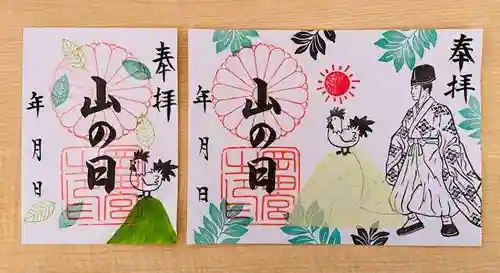 奉拝
山の日
年月日
奉拝
山の日
年月日